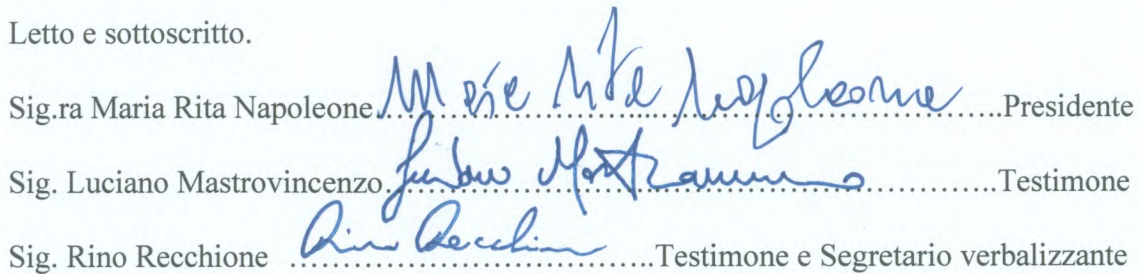 Letto e sottoscritto.
Sig.ra Maria Rita Napoleone Maria Rita Napoleone Presidente
Sig. Luciano Mastrovincenzo Luciano Mastrovincenzo Testimone
Sig. Rino Recchione Rino Recchione Testimone e Segretario verbalizzante